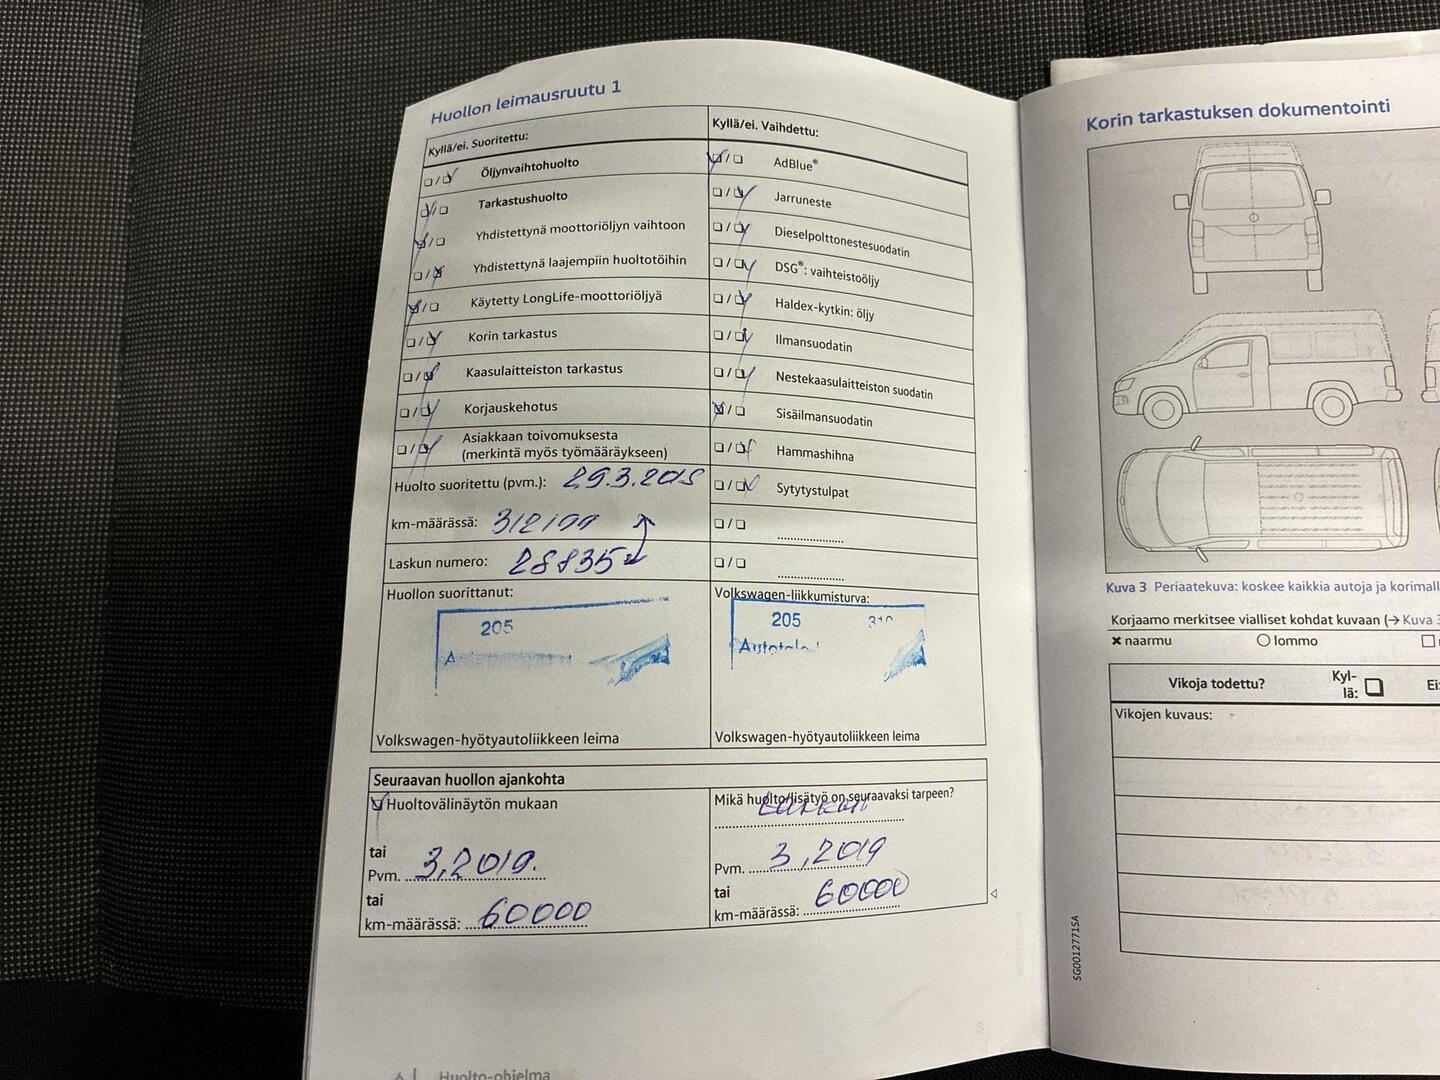 Huollon leimausruutu 1
Kyllä/ei. Suoritettu:
Öljynvaihtohuolto
Tarkastushuolto
Yhdistettynä moottoriöljyn vaihtoon
Yhdistettynä laajempiin huoltotöihin
Käytetty LongLife-moottoriöljyä
Korin tarkastus
Kaasulaitteiston tarkastus
Korjauskehotus
Asiakkaan toivomuksesta
(merkintä myös työmääräykseen)
Huolto suoritettu (pvm.): 29.3.2018
km-määrässä:
Laskun numero: 28835
Huollon suorittanut:
205
Volkswagen-hyötyautoliikkeen leima
Kyllä/ei. Vaihdettu:
AdBlue®
Jarruneste
Dieselpolttonestesuodatin
DSG®: vaihteistoöljy
Haldex-kytkin: öljy
Ilmansuodatin
Nestekaasulaitteiston suodatin
Sisäilmansuodatin
Hammashihna
Sytytystulpat
Volkswagen-liikkumisturva:
205 310
Volkswagen-hyötyautoliikkeen leima
Seuraavan huollon ajankohta
Huoltovälinäytön mukaan
tai
Pvm. 3,2019.
tai
km-määrässä: 60000
Mikä huolto/lisätyö on seuraavaksi tarpeen?
Pvm. 3,2019
tai
km-määrässä: 60000
6 | Huolto-ohjelma
Korin tarkastuksen dokumentointi
Kuva 3 Periaatekuva: koskee kaikkia autoja ja korimall
Korjaamo merkitsee vialliset kohdat kuvaan (→ Kuva 3
naarmu
lommo
Vikoja todettu?
Kyl-
lä:
Ei:
Vikojen kuvaus:
SG0012771SA